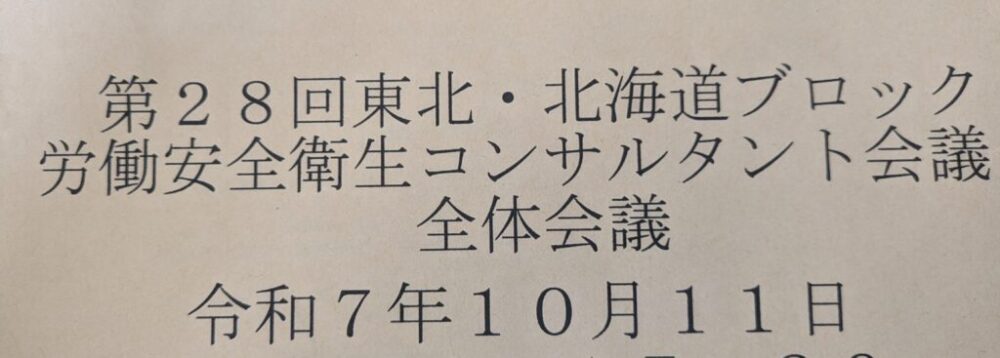 第２８回東北・北海道ブロック
労働安全衛生コンサルタント会議
全体会議
令和７年１０月１１日